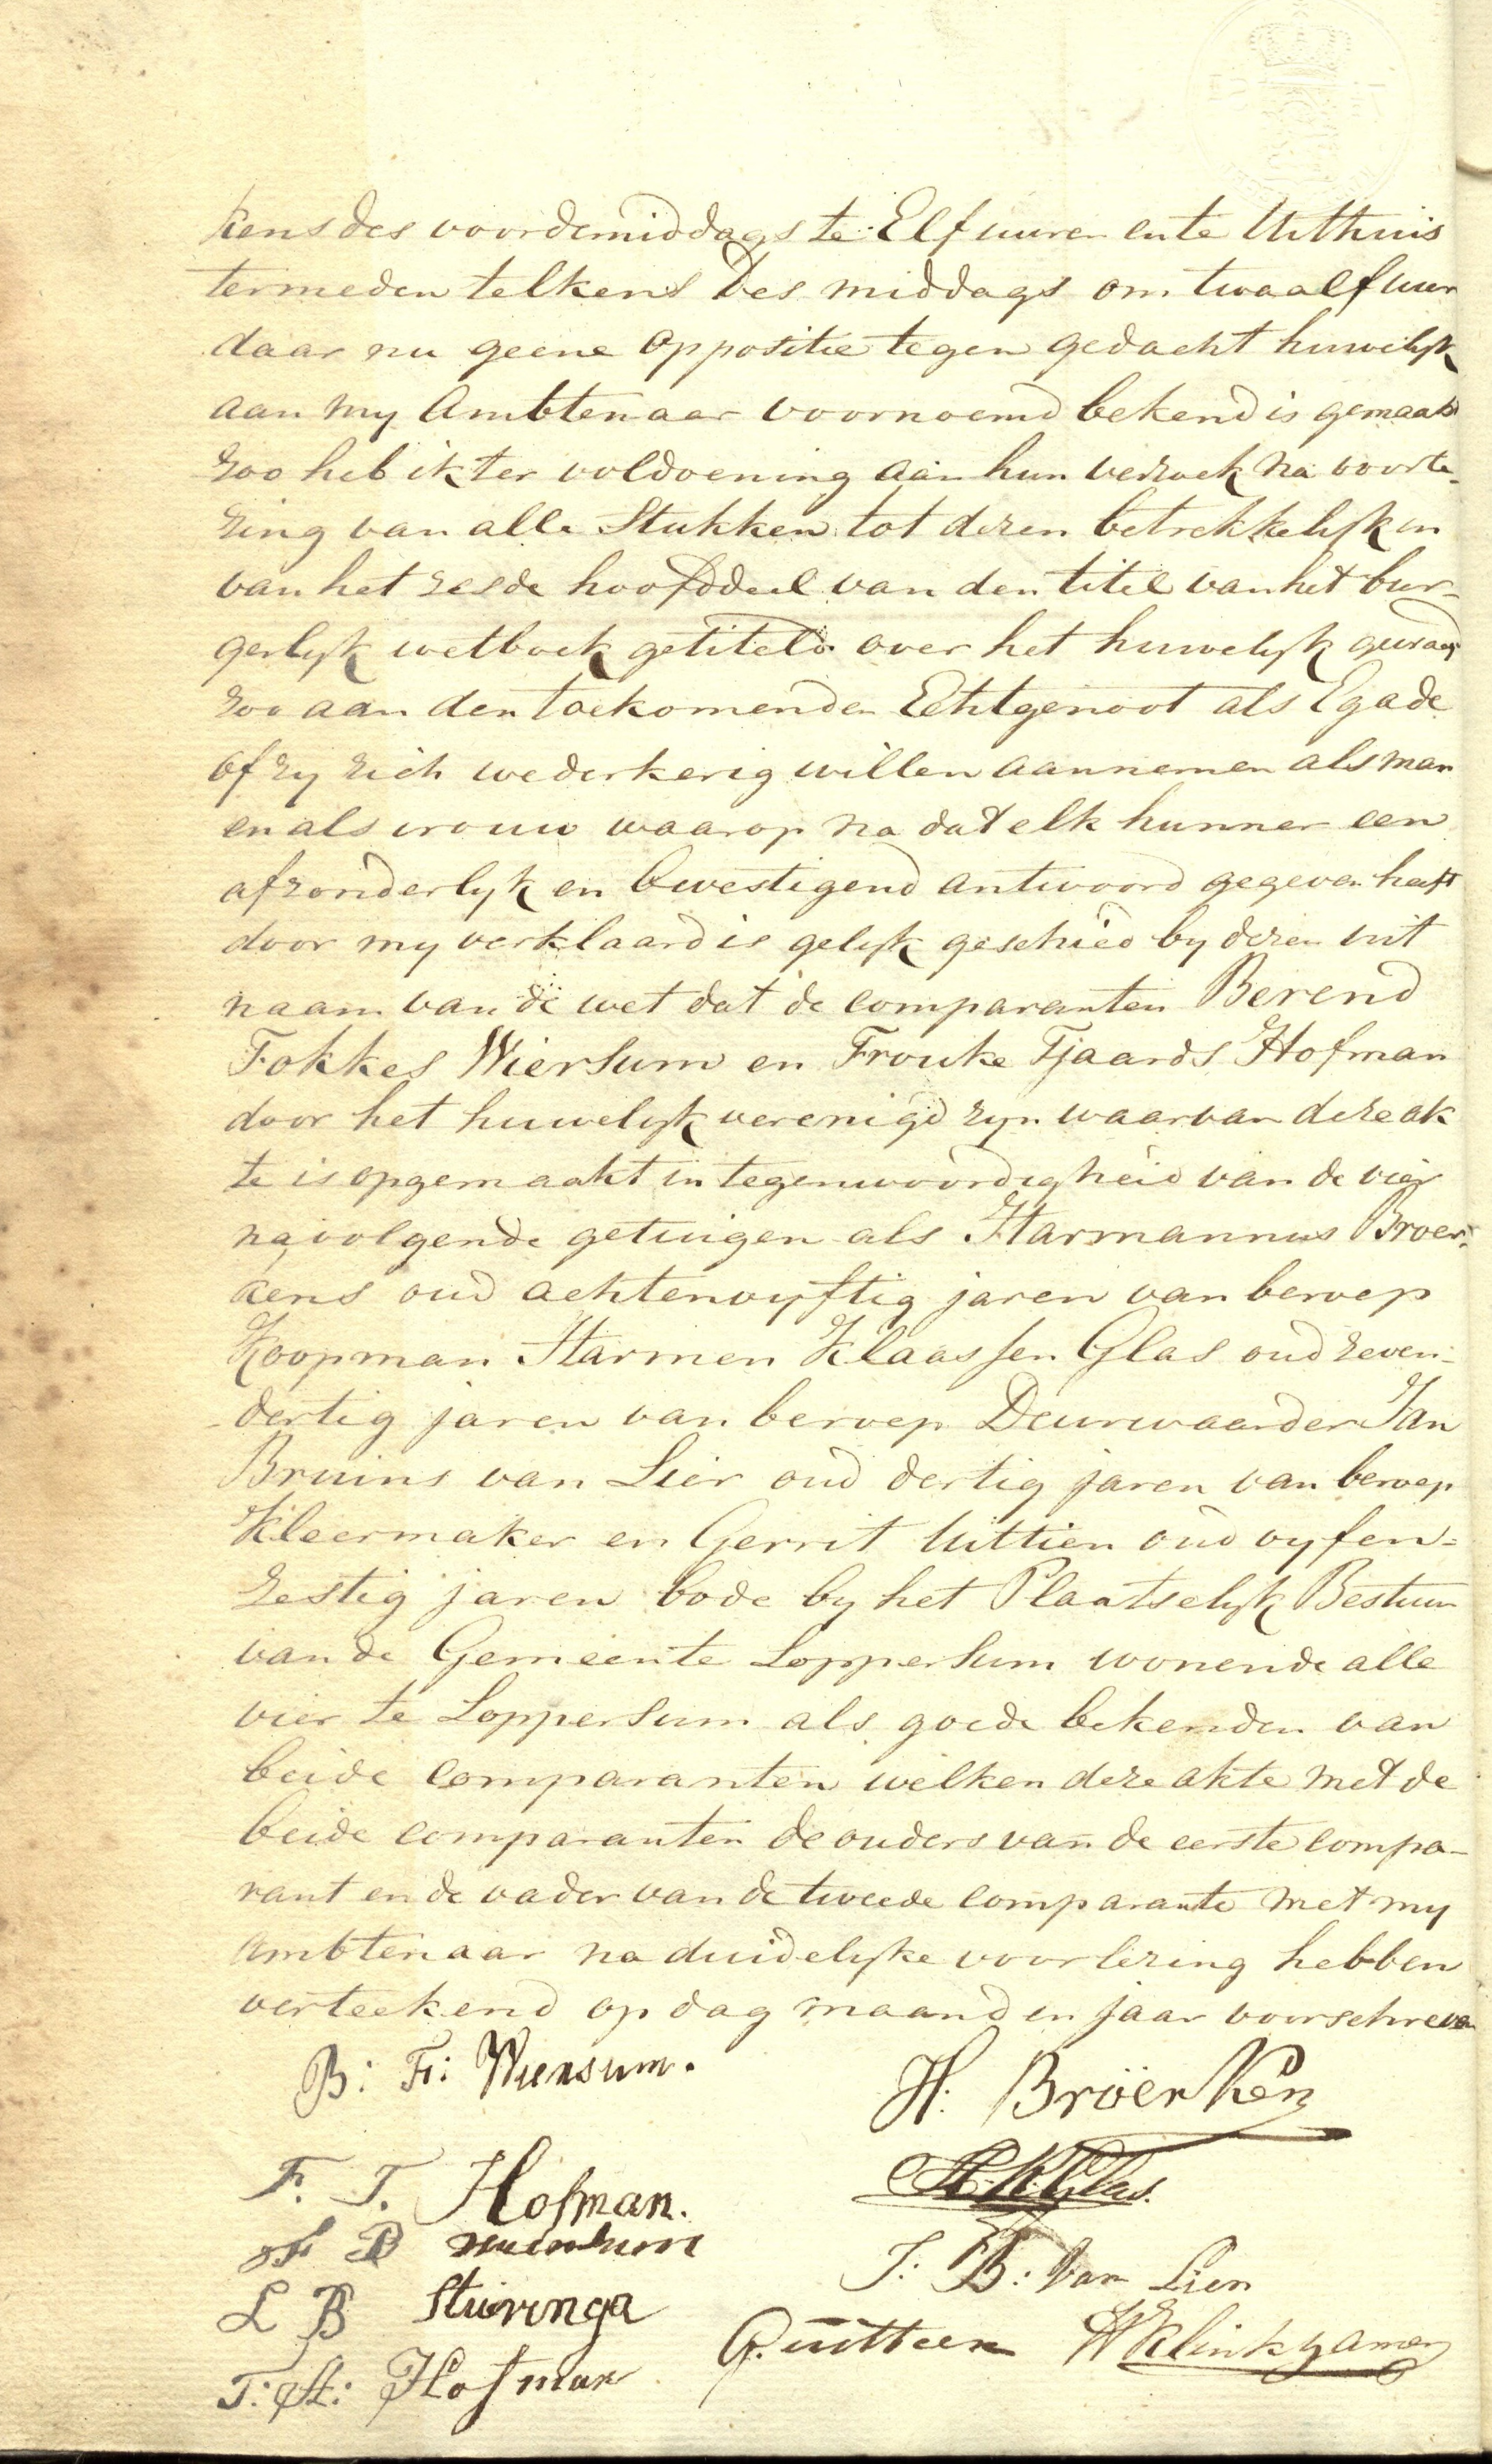 kens des voordemiddags te Elf uuren en te Uithuis
termeden telkens des middags om twaalf uur
daar nu geene oppositie tegen gedacht huwelijk
aan my Ambtenaar voornoemd bekend is gemaakt
zoo heb ik ter voldoening aan hun verzoek na voorle-
zing van alle Stukken tot dezen betrekkelyk en
van het zesde hoofddeel van den titel van het bur-
gerlyk wetboek getiteld over het huwelyk gevraagd
zoo aan den toekomenden Echtgenoot als Egade
of zy zich wederkerig willen aannemen als man
en als vrouw waarop na dat elk hunner een
afzonderlyk en bevestigend antwoord gegeven heeft
door my verklaard is gelyk geschied by dezen uit
naam van de wet dat de comparanten Berend
Fokkes Wiersum en Frouke Tjaards Hofman
door het huwelyk verenigd zyn waarvan deze ak
te is opgemaakt in tegenwoordigheid van de vier
navolgende getuigen als Harmannus Broer-
kens oud achtenvyftig jaren van beroep
Koopman Harmen Klaassen Glas oud zeven-
dertig jaren van beroep Deurwaarder Jan
Bruins van Lier oud dertig jaren van beroep
Kleermaker en Gerrit Uittien oud vyfen-
zestig jaren bode by het Plaatselyk Bestuur
van de Gemeente Loppersum wonende alle
vier te Loppersum als goede bekenden van
beide comparanten welken deze akte met de
beide comparanten de ouders van de eerste compa-
rant en de vader van de tweede comparante met my
Ambtenaar na duidelyke voorlezing hebben
verteekend op dag maand en jaar voorschreven
B: F: Wiersum.
H. Bröerken
F. T. Hofman.
H. K. Glas.
F B Wiersum
J: B: van Lier
L B Stuivinga
G. uittien
T: A: Hofman